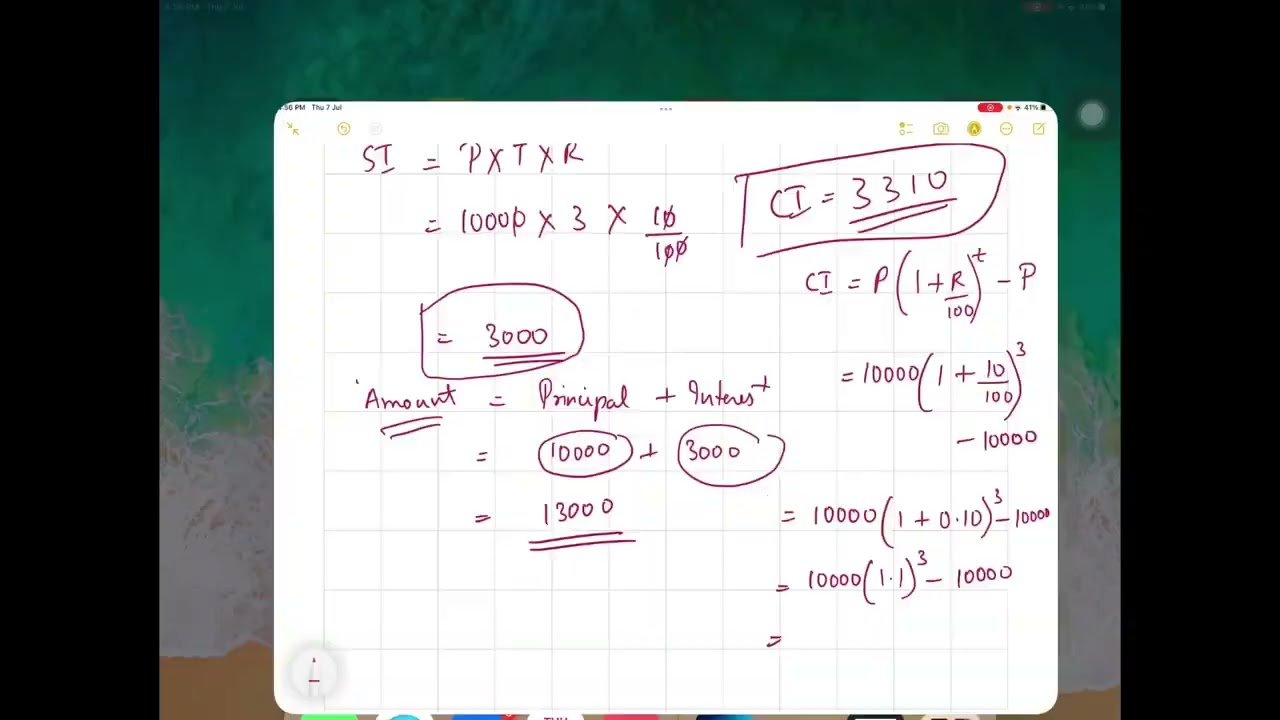 :56 PM Thu 7 Jul
41%
SI = P X T X R
= 10000 X 3 X 10/100
= 3000
Amount = Principal + Interest
= 10000 + 3000
= 13000
CI = 3310
CI = P(1 + R/100)^t - P
= 10000(1 + 10/100)^3
- 10000
= 10000(1 + 0.10)^3 - 10000
= 10000(1.1)^3 - 10000
=